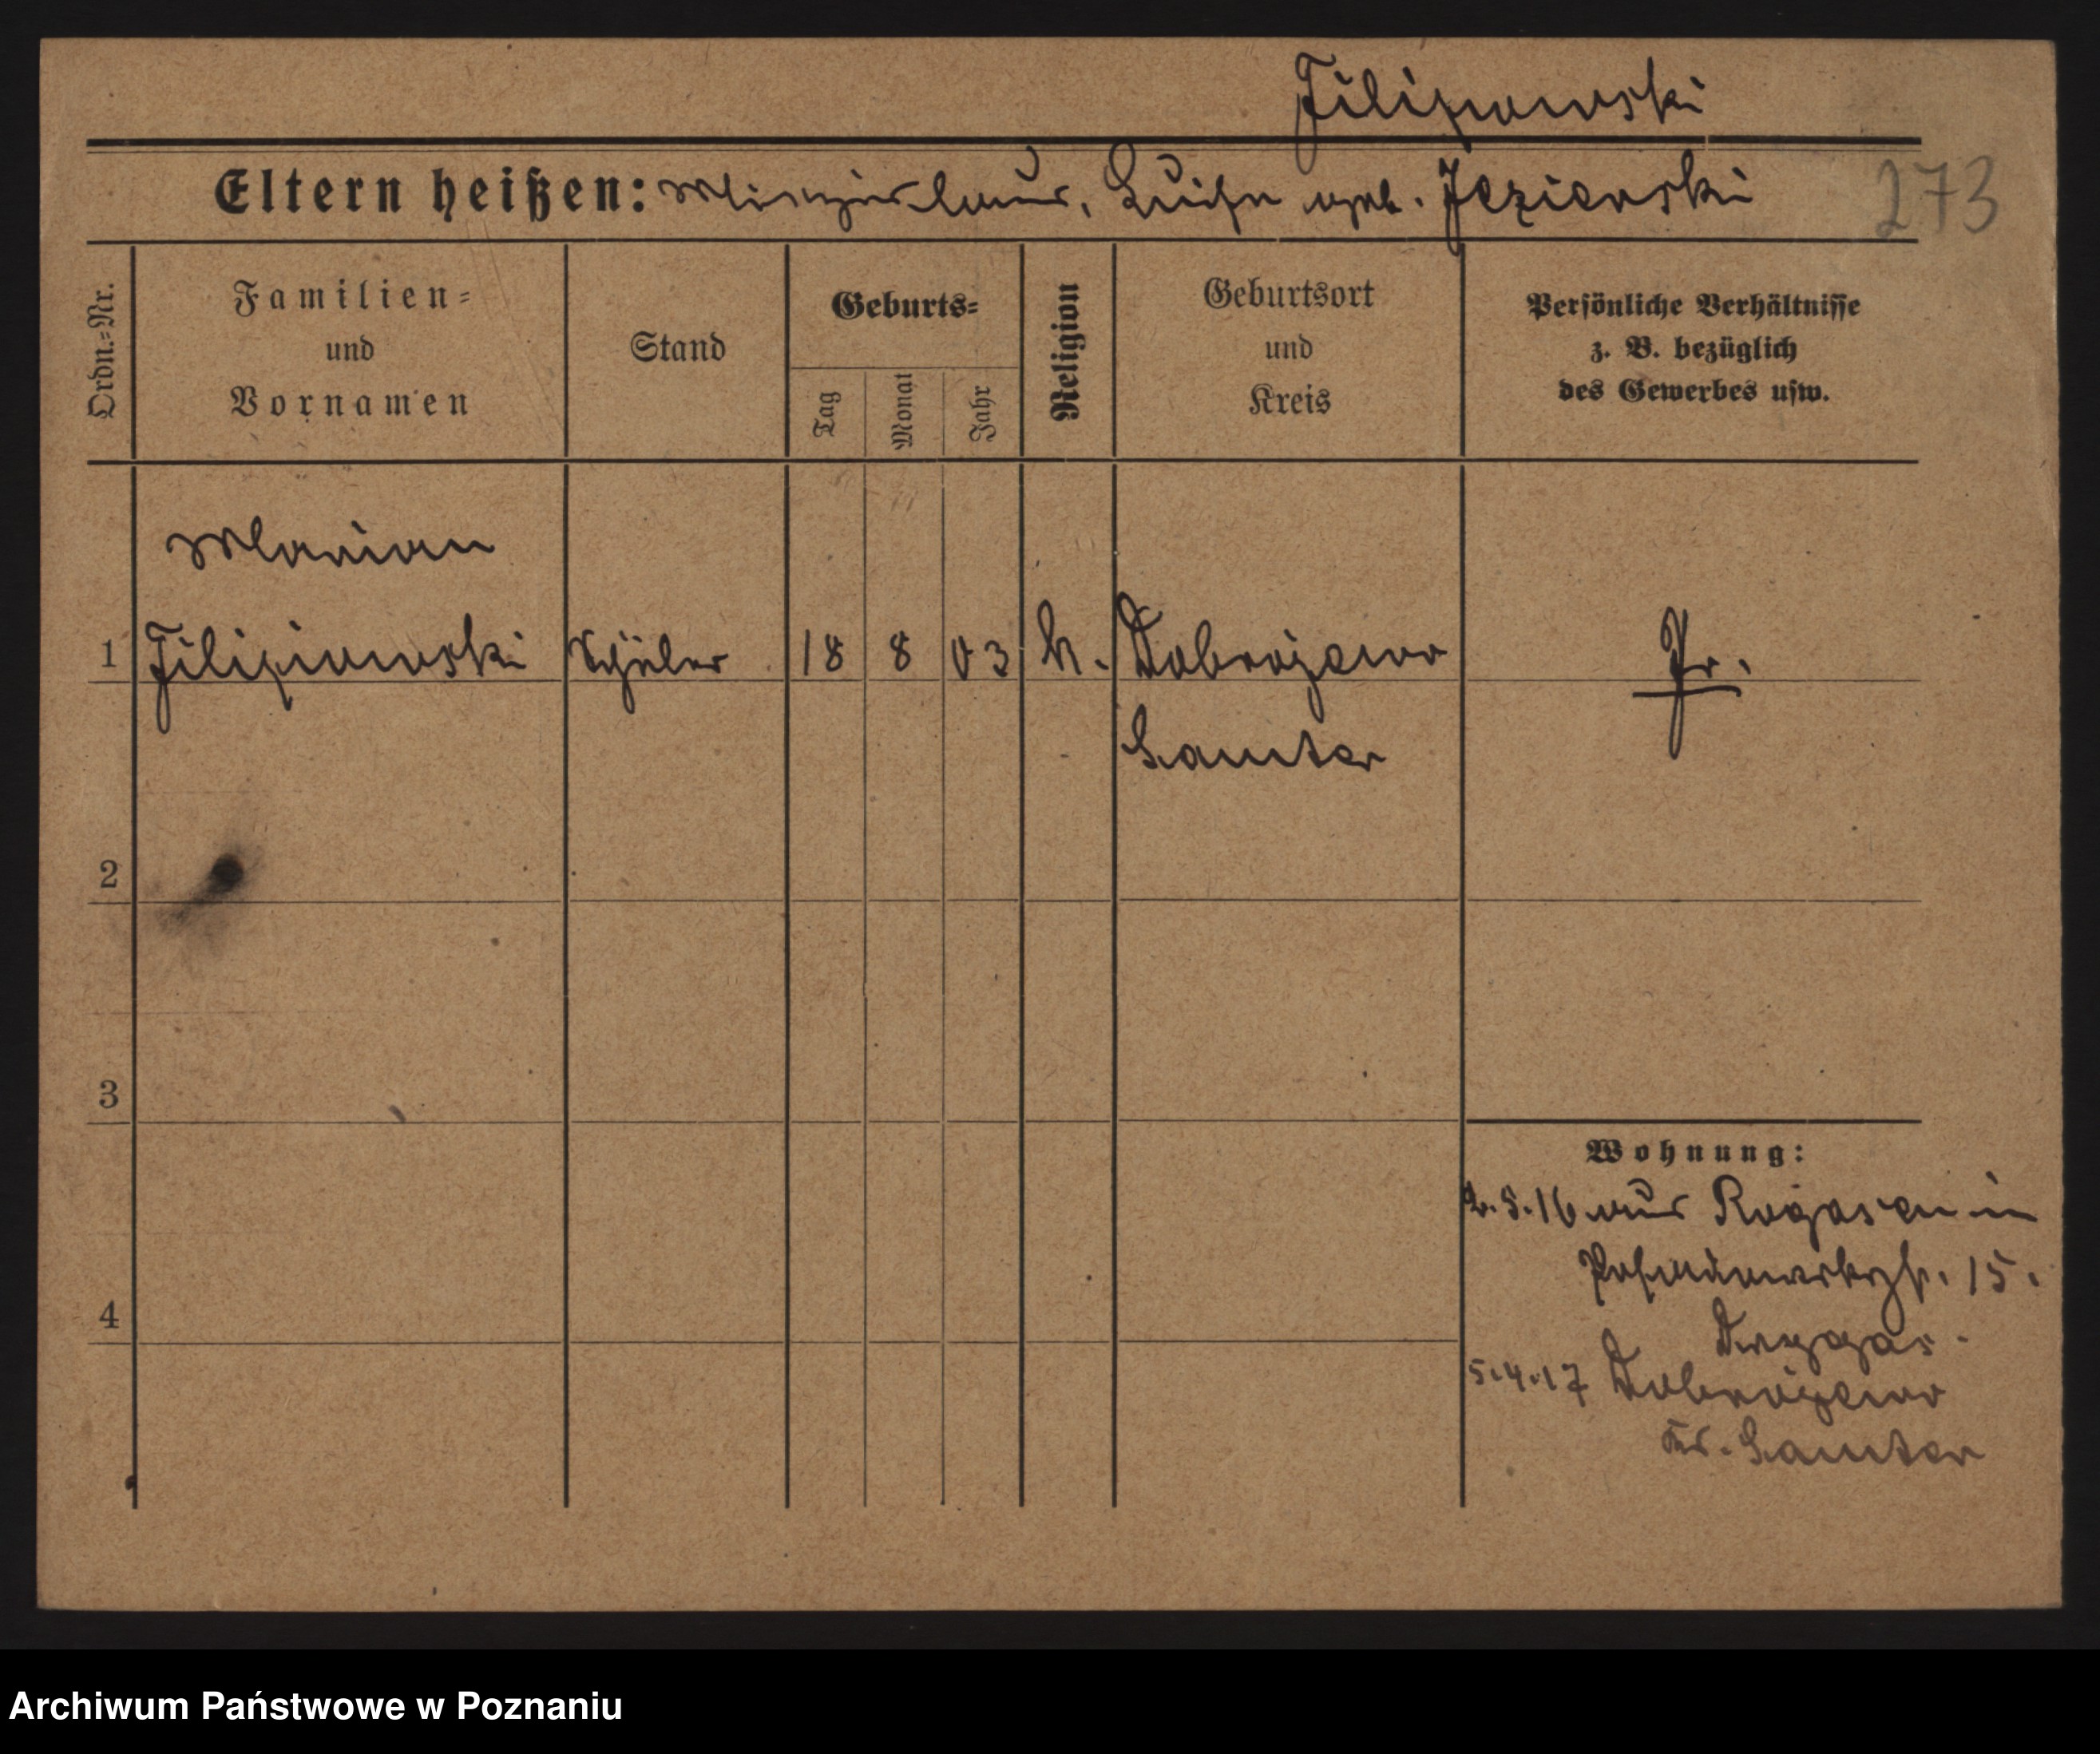 Filipowski
Eltern heißen: Mieczislaus, Luise geb. Jezierski
273
Ordn.=Nr.
Familien=
und
Vornamen
Stand
Geburts=
Tag
Monat
Jahr
Religion
Geburtsort
und
Kreis
Persönliche Verhältnisse
z. B. bezüglich
des Gewerbes usw.
Marian
1 Filipowski Schüler 18 8 03 k. Dobrojewo Pr.
Samter
2
3
4
Wohnung:
2.5.16 aus Rogasen in
15.
5.4.17 Dobrojewo
Kr. Samter
Archiwum Państwowe w Poznaniu